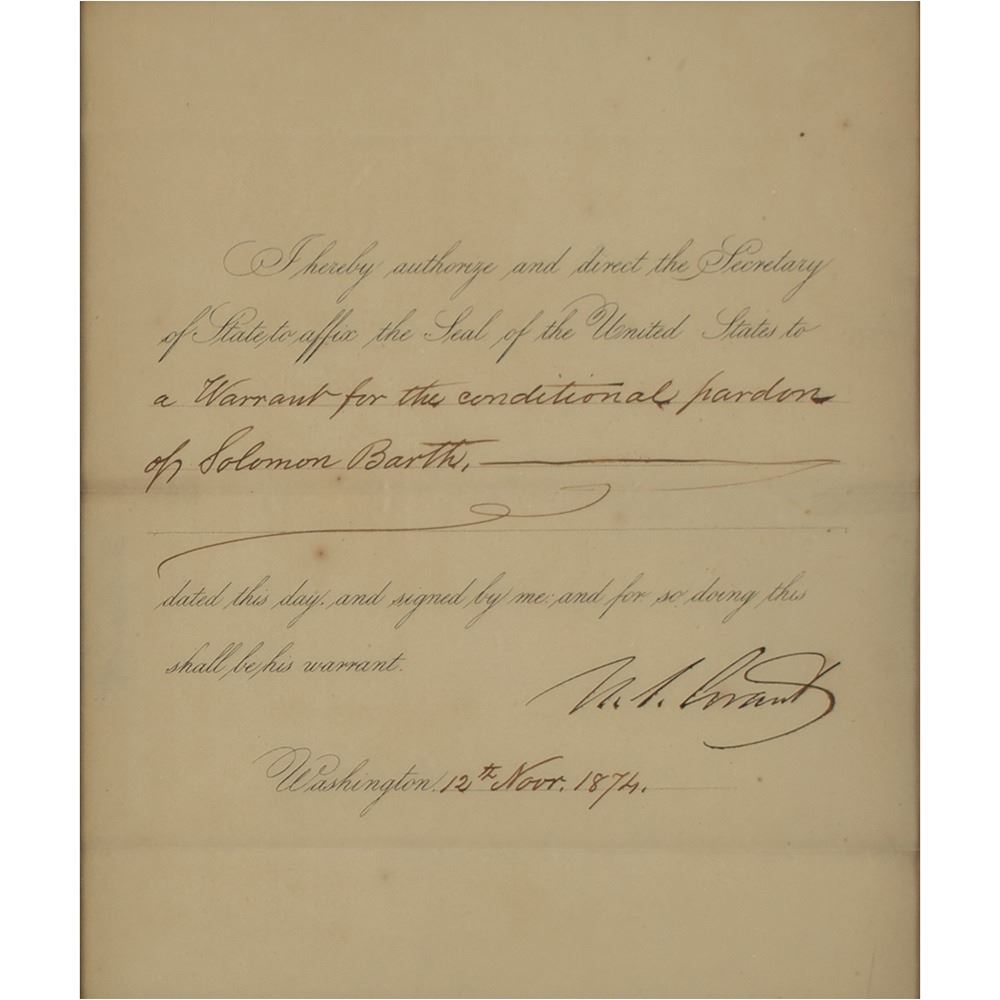 I hereby authorize and direct the Secretary
of State, to affix the Seal of the United States to
a Warrant for the conditional pardon
of Solomon Barth,
dated this day, and signed by me: and for so doing this
shall be his warrant.
U. S. Grant
Washington, 12th Novr. 1874.